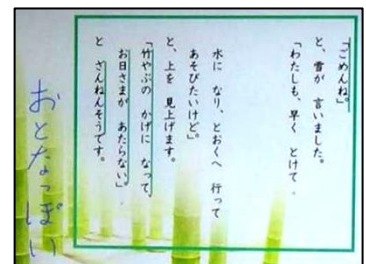 「ごめんね。」
と、雪が 言いました。
「わたしも、早く とけて、
水に なり、とおくへ 行って
あそびたいけど。」
と、上を 見上げます。
「竹やぶの かげに なって、
お日さまが あたらない。」
と ざんねんそうです。
おとなっぽい